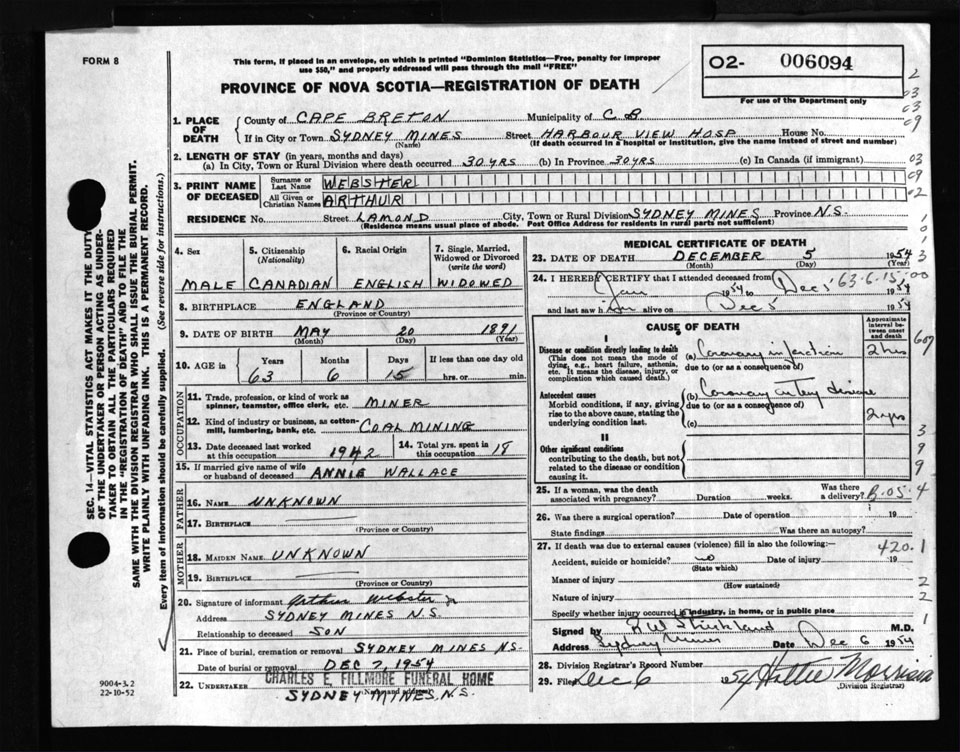 FORM 8
This form, if placed in an envelope, on which is printed "Dominion Statistics—Free, penalty for improper
use $50," and properly addressed will pass through the mail "FREE"
02- 006094
For use of the Department only
PROVINCE OF NOVA SCOTIA—REGISTRATION OF DEATH
SEC. 14—VITAL STATISTICS ACT MAKES IT THE DUTY
OF THE UNDERTAKER OR PERSON ACTING AS UNDER-
TAKER TO OBTAIN ALL THE PARTICULARS REQUIRED
IN THE "REGISTRATION OF DEATH" AND TO FILE THE
SAME WITH THE DIVISION REGISTRAR WHO SHALL ISSUE THE BURIAL PERMIT.
WRITE PLAINLY WITH UNFADING INK. THIS IS A PERMANENT RECORD.
Every item of information should be carefully supplied. (See reverse side for instructions.)
1. PLACE OF DEATH
County of CAPE BRETON Municipality of C B
If in City or Town SYDNEY MINES Street HARBOUR VIEW HOSP House No.
(Name) (If death occurred in a hospital or institution, give the name instead of street and number)
2. LENGTH OF STAY (in years, months and days)
(a) In City, Town or Rural Division where death occurred 30 YRS (b) In Province 30 YRS (c) In Canada (if immigrant)
3. PRINT NAME OF DECEASED
Surname or Last Name WEBSTER
All Given or Christian Names ARTHUR
RESIDENCE No. Street LAMOND City, Town or Rural Division SYDNEY MINES Province N.S.
(Residence means usual place of abode. Post Office Address for residents in rural parts not sufficient)
4. Sex MALE
5. Citizenship (Nationality) CANADIAN
6. Racial Origin ENGLISH
7. Single, Married, Widowed or Divorced (write the word) WIDOWED
8. BIRTHPLACE ENGLAND
(Province or Country)
9. DATE OF BIRTH MAY 20 1891
(Month) (Day) (Year)
10. AGE in Years Months Days If less than one day old
63 6 15 hrs. or min.
OCCUPATION
11. Trade, profession, or kind of work as spinner, teamster, office clerk, etc. MINER
12. Kind of industry or business, as cotton-mill, lumbering, bank, etc. COAL MINING
13. Date deceased last worked at this occupation 1942
14. Total yrs. spent in this occupation 18
15. If married give name of wife or husband of deceased ANNIE WALLACE
FATHER
16. NAME UNKNOWN
17. BIRTHPLACE
(Province or Country)
MOTHER
18. MAIDEN NAME UNKNOWN
19. BIRTHPLACE
(Province or Country)
20. Signature of informant Arthur Webster Jr
Address SYDNEY MINES N.S.
Relationship to deceased SON
21. Place of burial, cremation or removal SYDNEY MINES NS.
Date of burial or removal DEC 7, 1954
22. UNDERTAKER CHARLES E. FILLMORE FUNERAL HOME
(Name and address)
SYDNEY MINES, N.S.
9004-3.2
22-10-52
MEDICAL CERTIFICATE OF DEATH
23. DATE OF DEATH DECEMBER 5 1954
(Month) (Day) (Year)
24. I HEREBY CERTIFY that I attended deceased from 63-6-15-00
Jan 1954 to Dec 5 1954
and last saw him alive on Dec 5 1954
CAUSE OF DEATH
Approximate interval between onset and death
I
Disease or condition directly leading to death (a) Coronary infarction 2 hrs
(This does not mean the mode of dying, e.g., heart failure, asthenia, etc. It means the disease, injury, or complication which caused death.)
due to (or as a consequence of)
Antecedent causes (b) Coronary artery disease 2 yrs
Morbid conditions, if any, giving rise to the above cause, stating the underlying condition last.
due to (or as a consequence of)
(c)
II
Other significant conditions
contributing to the death, but not related to the disease or condition causing it.
25. If a woman, was the death associated with pregnancy? Duration weeks. Was there a delivery? B-05-4
26. Was there a surgical operation? Date of operation 19
State findings Was there an autopsy?
27. If death was due to external causes (violence) fill in also the following:— 420.1
Accident, suicide or homicide? no Date of injury 19
(State which)
Manner of injury
(How sustained)
Nature of injury
Specify whether injury occurred in industry, in home, or in public place
Signed by R W Strickland M.D.
Address Sydney Mines Date Dec 6 1954
28. Division Registrar's Record Number
29. Filed Dec 6 1954 Hattie Morrison
(Division Registrar)
2
03
03
09
03
09
02
607
3
9
9
1
2
2
1